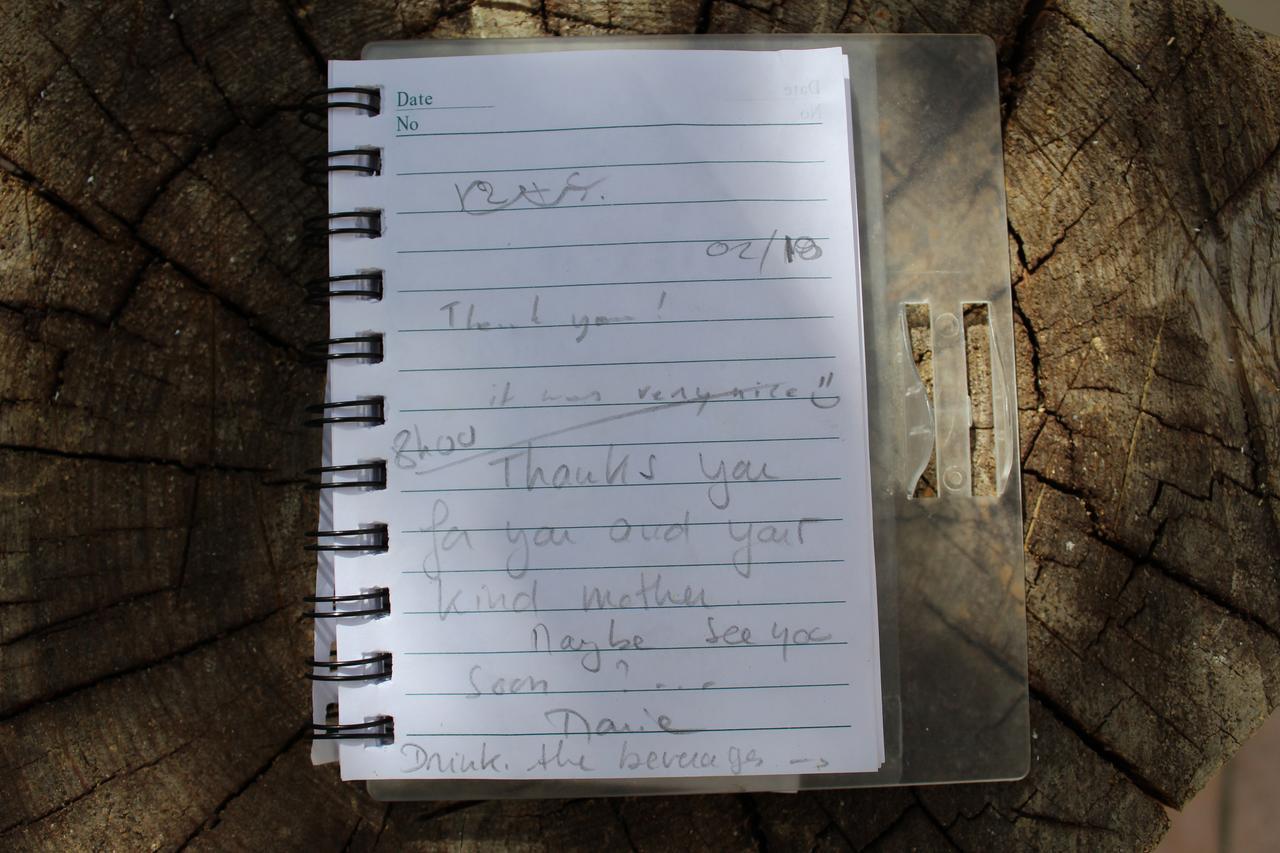 Date
No
02/18
Thank you!
it was very nice
8h00
Thanks you
for you and your
kind mother.
Maybe see you
Soon ? ....
Drink. the beverages →